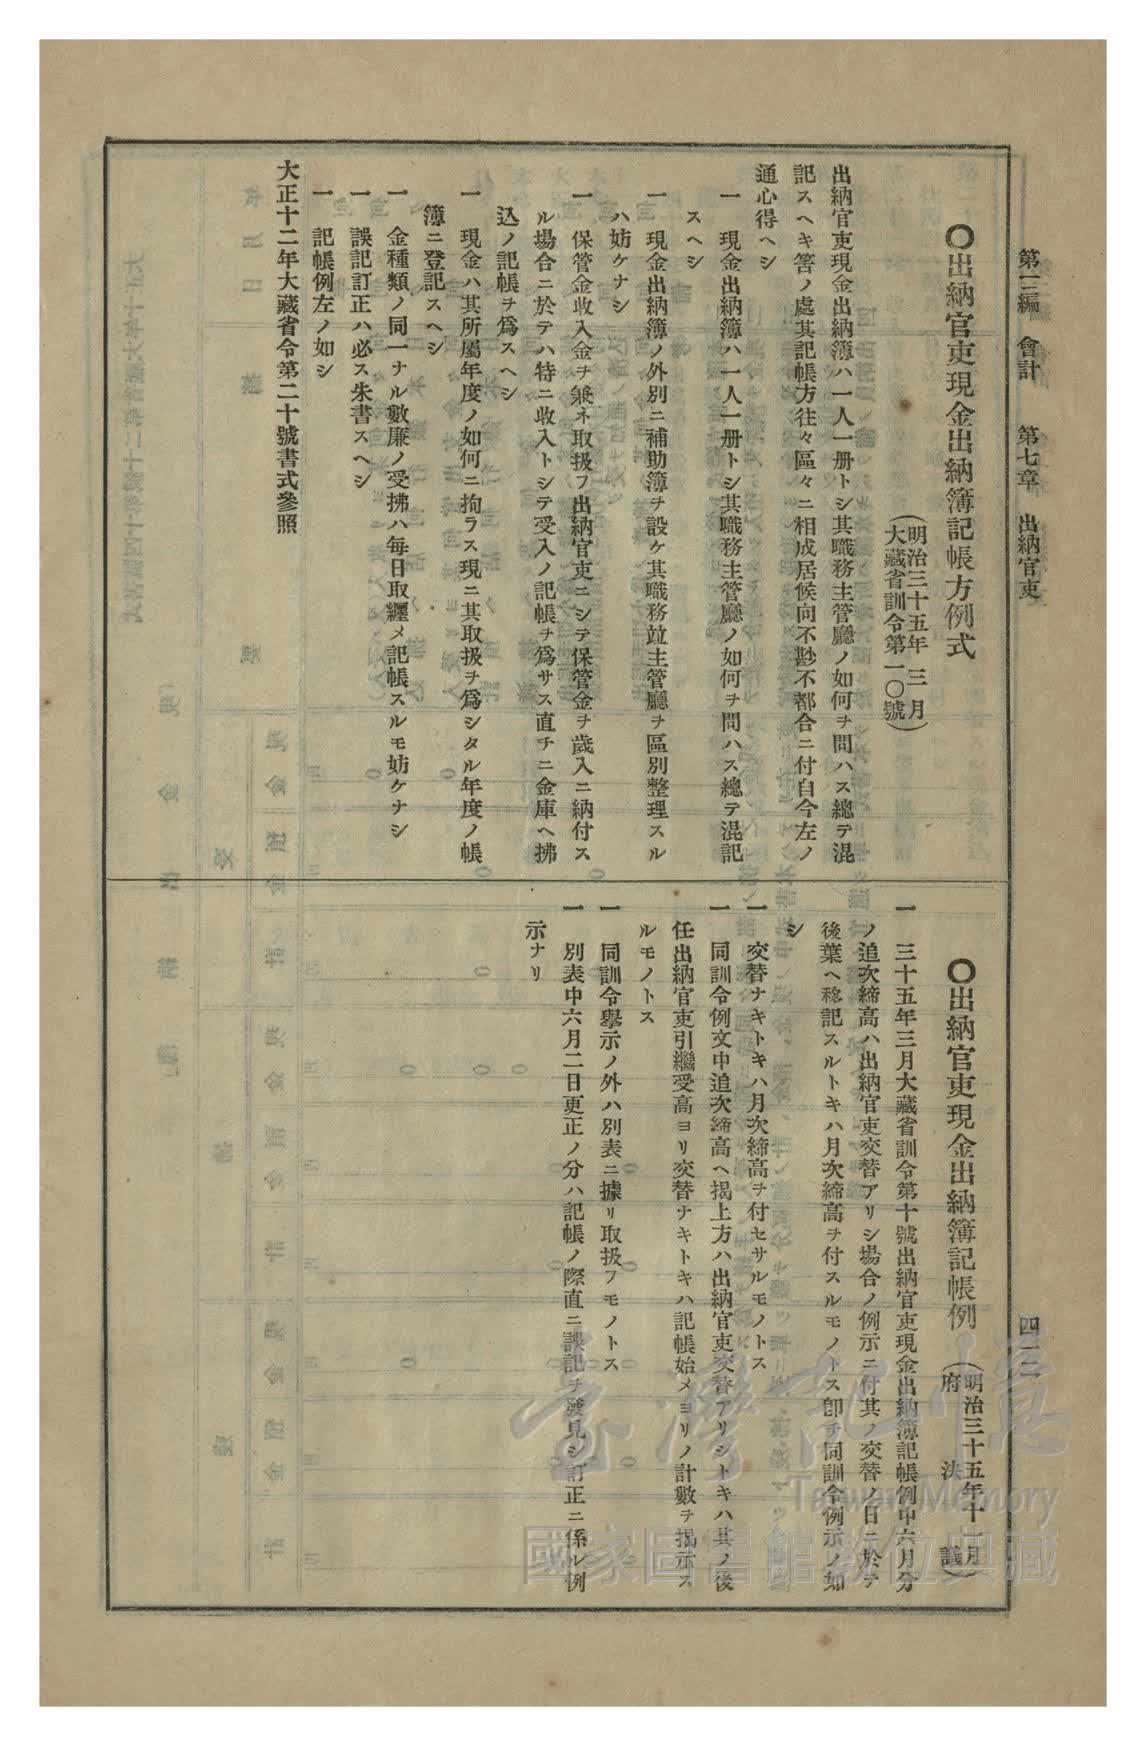 第三編　會計　　第七章　出納官吏
四一二
〇出納官吏現金出納簿記帳方例式
（明治三十五年三月
大藏省訓令第一〇號）
出納官吏現金出納簿ハ一人一册トシ其職務主管廳ノ如何ヲ問ハス總テ混
記スヘキ筈ノ處其記帳方往々區々ニ相成居候向不尠不都合ニ付自今左ノ
通心得ヘシ
一　現金出納簿ハ一人一册トシ其職務主管廳ノ如何ヲ問ハス總テ混記
スヘシ
一　現金出納簿ノ外別ニ補助簿ヲ設ケ其職務竝主管廳ヲ區別整理スル
ハ妨ケナシ
一　保管金收入金ヲ兼ネ取扱フ出納官吏ニシテ保管金ヲ歲入ニ納付ス
ル場合ニ於テハ特ニ收入トシテ受入ノ記帳ヲ爲サス直チニ金庫ヘ拂
込ノ記帳ヲ爲スヘシ
一　現金ハ其所屬年度ノ如何ニ拘ラス現ニ其取扱ヲ爲シタル年度ノ帳
簿ニ登記スヘシ
一　金種類ノ同一ナル數廉ノ受拂ハ每日取纒メ記帳スルモ妨ケナシ
一　誤記訂正ハ必ス朱書スヘシ
一　記帳例左ノ如シ
大正十二年大藏省令第二十號書式參照
〇出納官吏現金出納簿記帳例
（明治三十五年十一月
府　決　議）
一　三十五年三月大藏省訓令第十號出納官吏現金出納簿記帳例中六月分
ノ追次締高ハ出納官吏交替アリシ場合ノ例示ニ付其ノ交替ノ日ニ於テ
後葉ヘ移記スルトキハ月次締高ヲ付スルモノトス卽チ同訓令例示ノ如
シ
一　交替ナキトキハ月次締高ヲ付セサルモノトス
一　同訓令例文中追次締高ヘ揭上方ハ出納官吏交替アリシトキハ其ノ後
任出納官吏引繼受高ヨリ交替ナキトキハ記帳始メヨリノ計數ヲ揭示ス
ルモノトス
一　同訓令擧示ノ外ハ別表ニ據リ取扱フモノトス
一　別表中六月二日更正ノ分ハ記帳ノ際直ニ誤記ヲ發見シ訂正ニ係ル例
示ナリ
臺灣記憶
Taiwan Memory
國家圖書館數位典藏